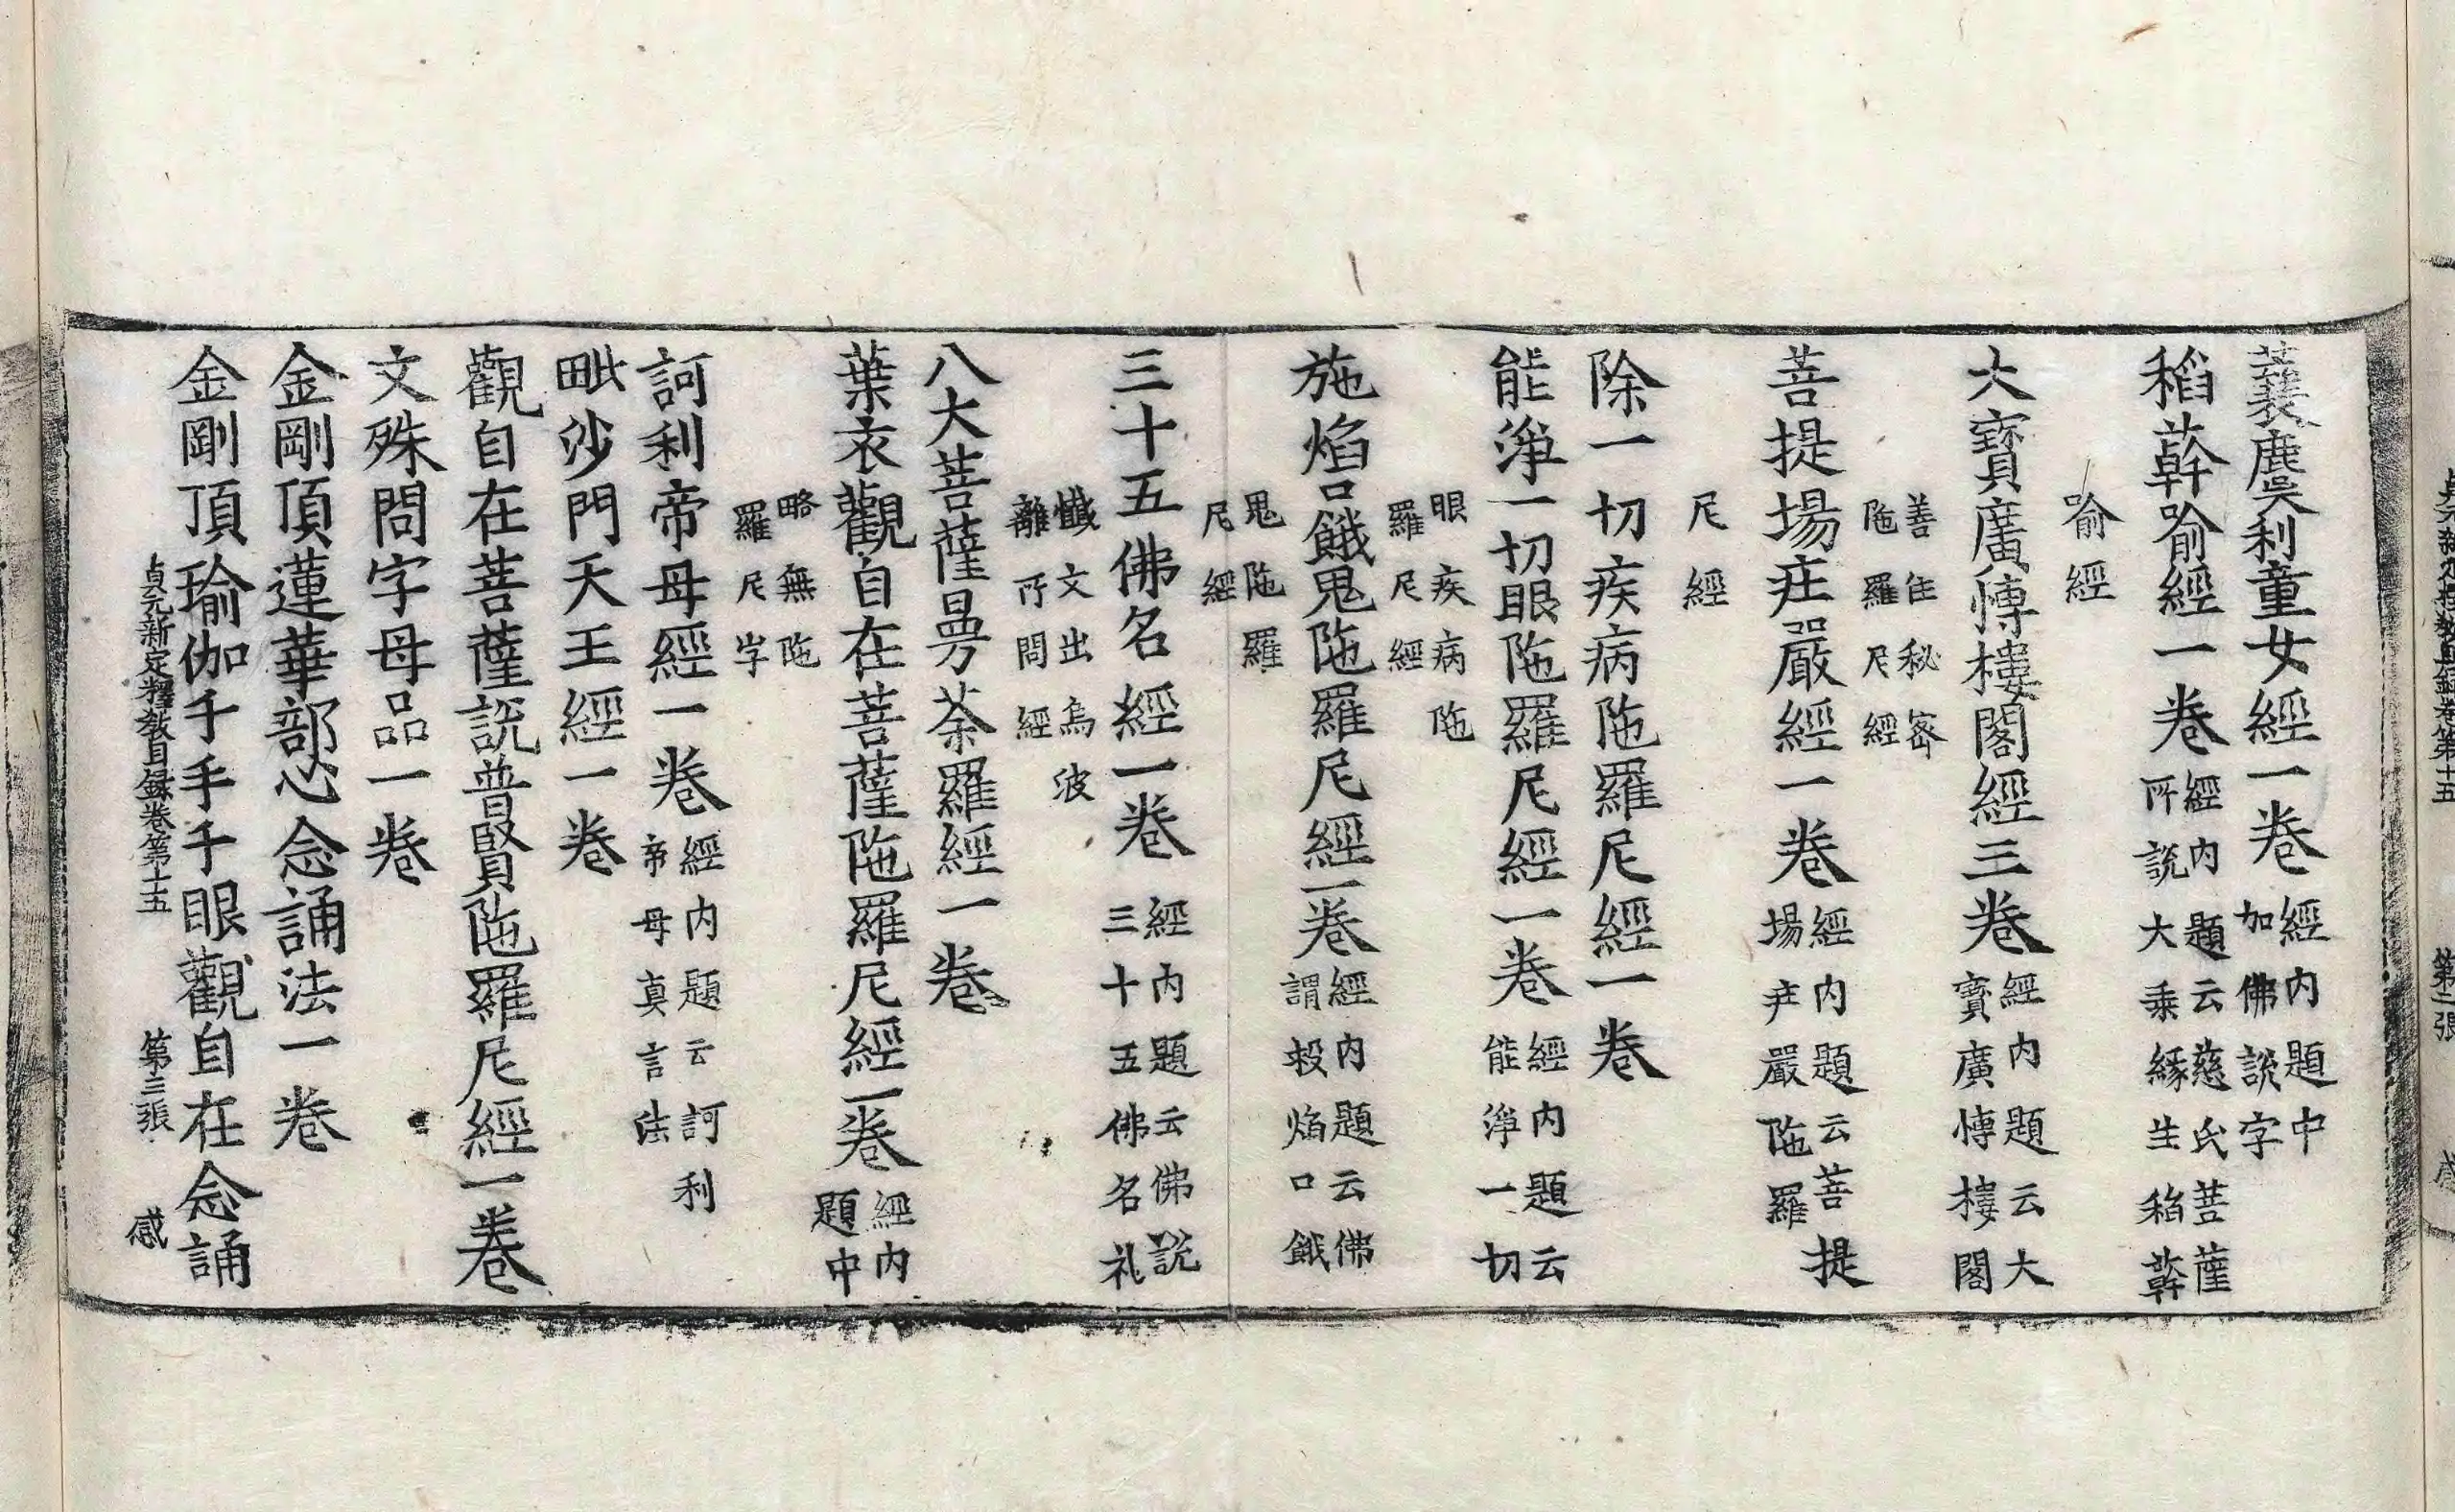 蘘麌利童女經一卷
經內題中
加佛說字
稻䕀喻經一卷
經內題云慈氏菩薩
所說大乘緣生稻䕀
喻經
大寶廣愽樓閣經三卷
經內題云大
寶廣愽樓閣
善住秘密
陁羅尼經
菩提場庄嚴經一卷
經內題云菩提
場庄嚴陁羅
尼經
除一切疾病陁羅尼經一卷
能淨一切眼陁羅尼經一卷
經內題云
能淨一切
眼疾病陁
羅尼經
施焰口餓鬼陁羅尼經一卷
經內題云佛
謂救焰口餓
鬼陁羅
尼經
三十五佛名經一卷
經內題云佛說
三十五佛名礼
懺文出烏波
離所問經
八大菩薩曼荼羅經一卷
葉衣觀自在菩薩陁羅尼經一卷
經內
題中
略無陁
羅尼字
訶利帝母經一卷
經內題云訶利
帝母真言法
毗沙門天王經一卷
觀自在菩薩說普賢陁羅尼經一卷
文殊問字母品一卷
金剛頂蓮華部心念誦法一卷
金剛頂瑜伽千手千眼觀自在念誦
貞元新定釋教目録卷第十五 第三張 感